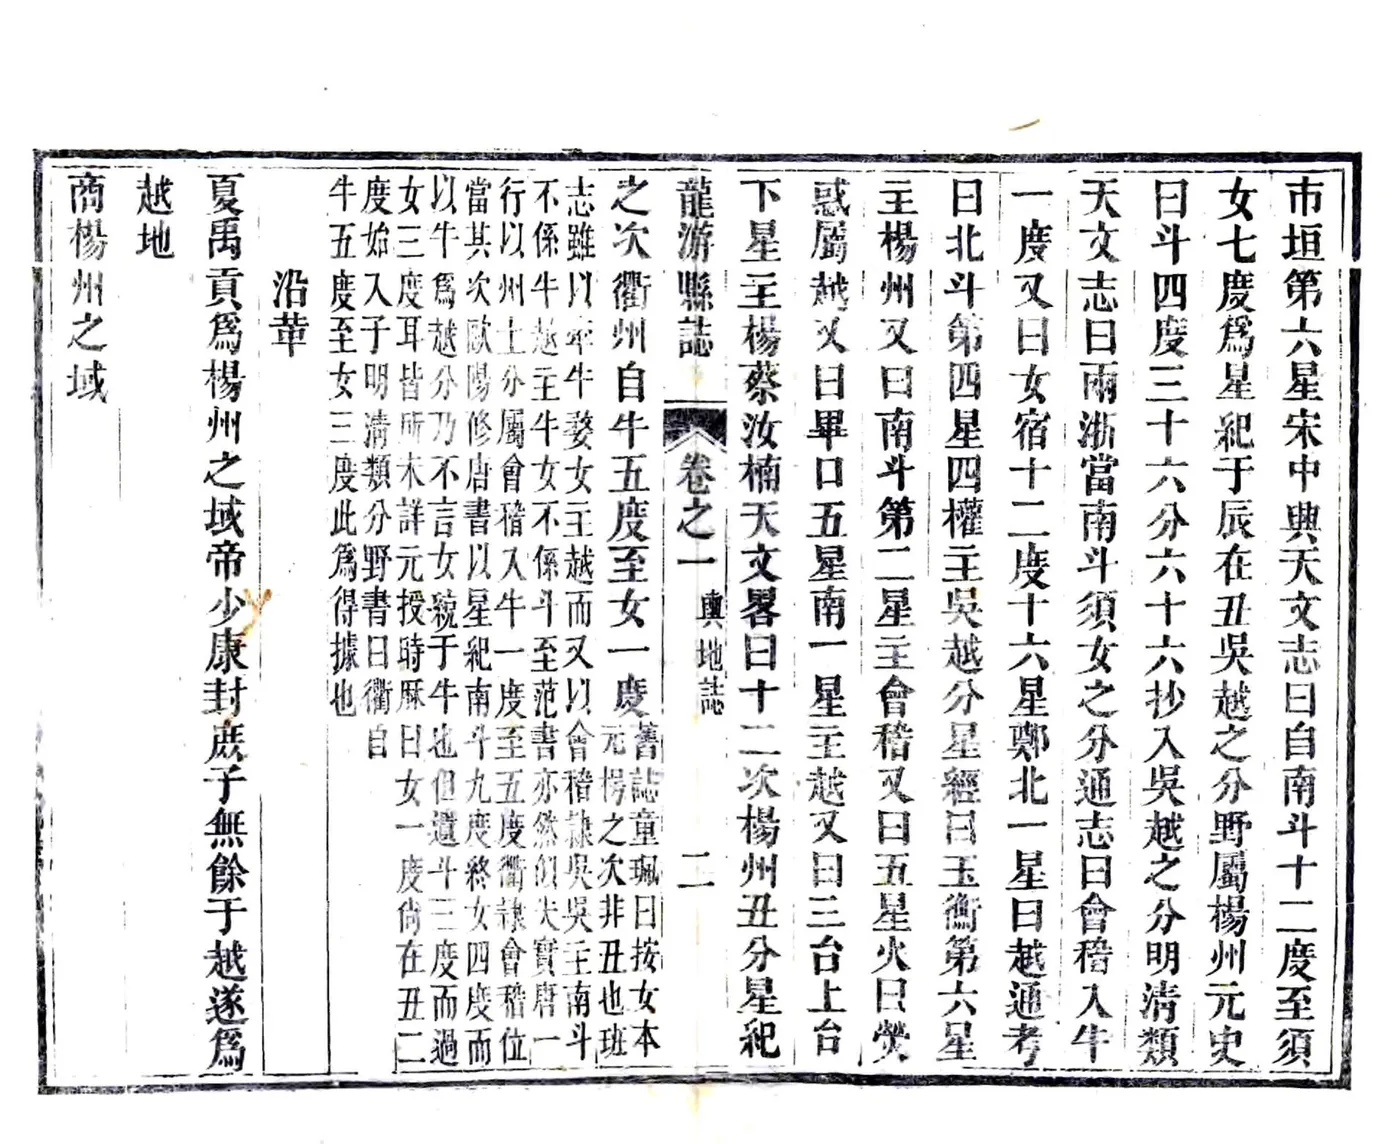 市垣第六星宋中興天文志曰自南斗十二度至須
女七度爲星紀于辰在丑吳越之分野屬楊州元史
曰斗四度三十六分六十六抄入吳越之分明清類
天文志曰兩浙當南斗須女之分通志曰會稽入牛
一度又曰女宿十二度十六星鄭北一星曰越通考
曰北斗第四星四權主吳越分星經曰玉衡第六星
主楊州又曰南斗第二星主會稽又曰五星火曰熒
惑屬越又曰畢口五星南一星主越又曰三台上台
下星主楊蔡汝楠天文畧曰十二次楊州丑分星紀
龍游縣誌 卷之一 輿地誌 二
之次衢州自牛五度至女一度舊誌童珮曰按女本
元枵之次非丑也班
志雖以牽牛婺女主越而又以會稽隷吳吳主南斗
不係牛越主牛女不係斗至范書亦然似失實唐一
行以州土分屬會稽入牛一度至五度衢隷會稽位
當其次歐陽修唐書以星紀南斗九度終女四度而
以牛爲越分乃不言女貌于牛也但遺斗三度而過
女三度耳皆所未詳元授時厤曰女一度尙在丑二
度始入子明清類分野書曰衢自
牛五度至女三度此爲得據也
沿革
夏禹貢爲楊州之域帝少康封庶子無餘于越遂爲
越地
商楊州之域